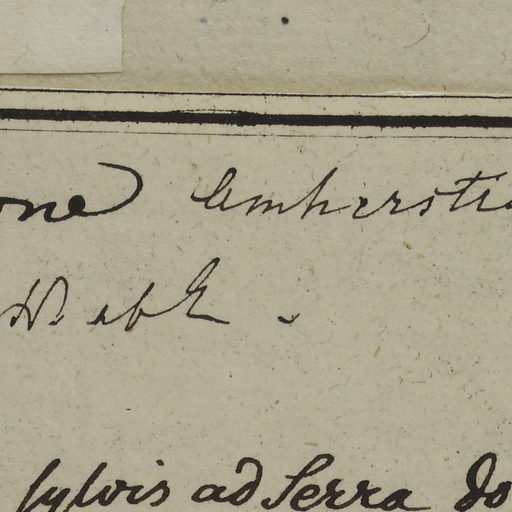 one Amherstia
W. ab E.
sylvis ad Serra do